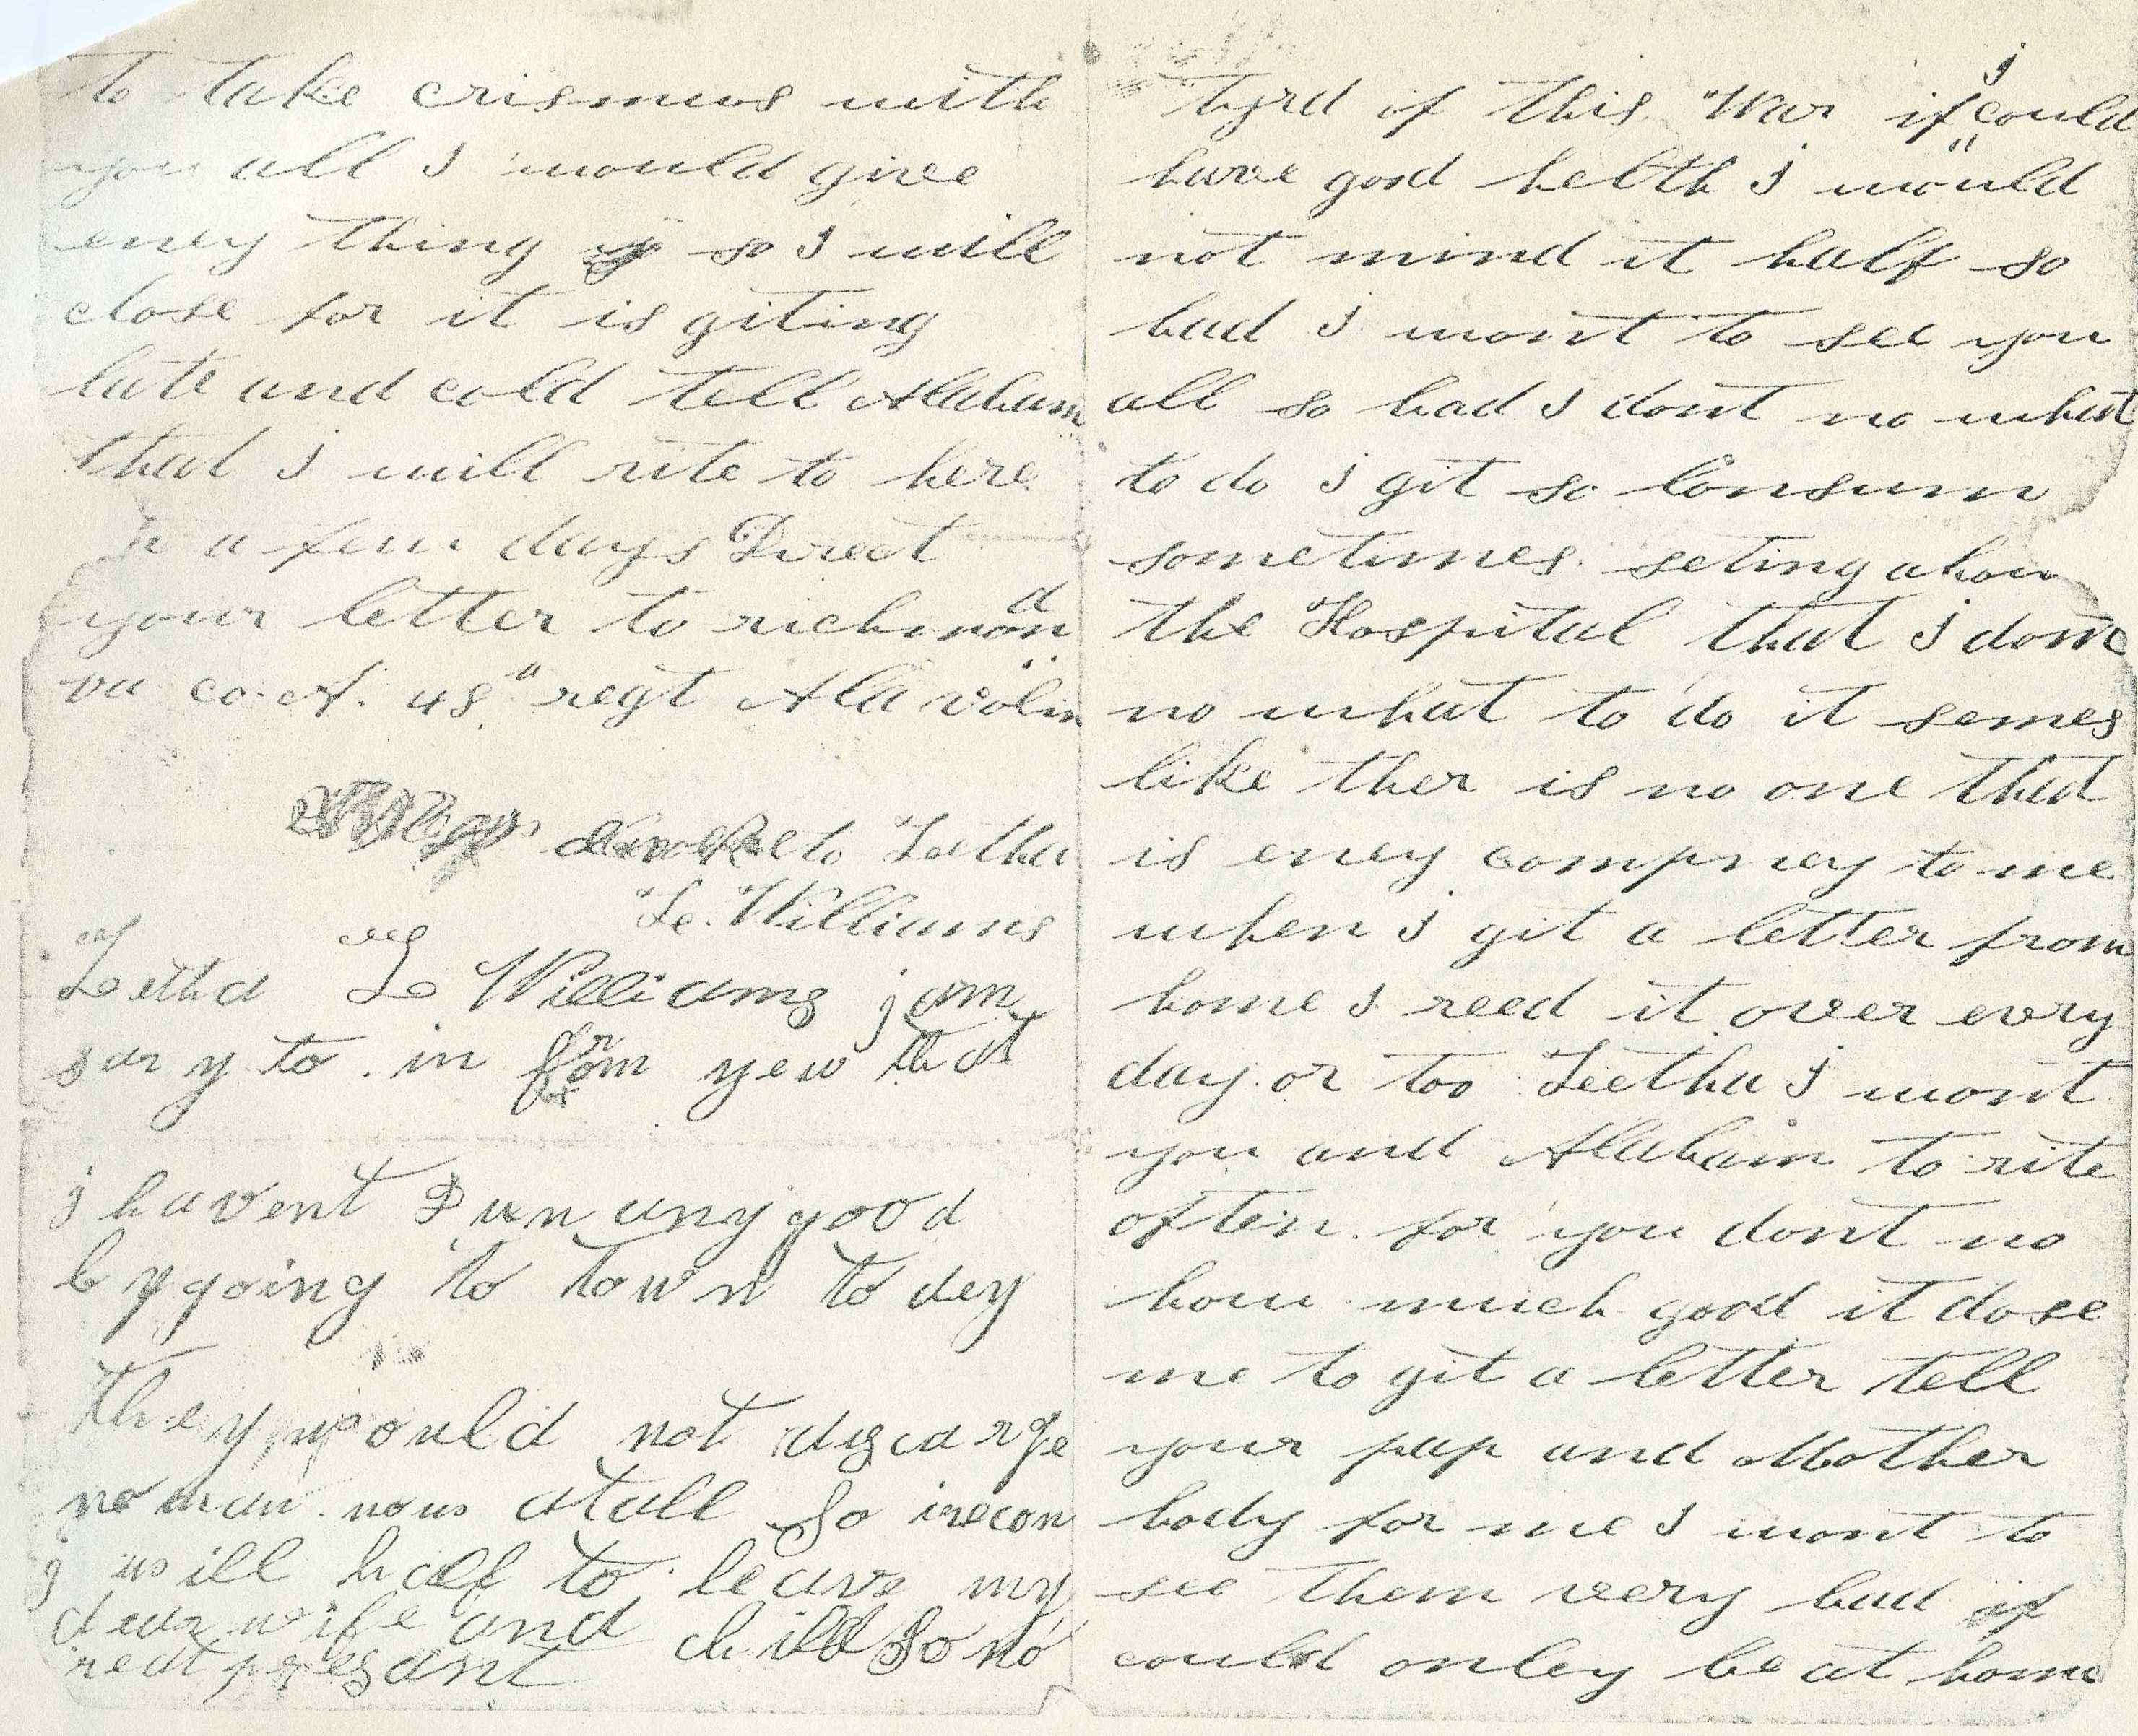 to take crismus with
you all I would give
eney thing so I will
close for it is giting
late and cold tell Alabam
that I will rite to here
in a few days Direct
your letter to richmond
va co. A. 48" regt Ala volin
to Leetha
Le. Williams
Leetha Le Williams j am
sary to in from yew that
j havent Dun any good
by going to town to dey
they would not discarge
no man now atall So i recon
j will half to leave my
dear wife and child So no
reat presant
tyrd if this War if I could
have good helth I would
not mind it half so
bad I wont to see you
all so bad I dont no what
to do I git so Lonsum
sometimes seting abou
the Hospital that I dont
no what to do it semes
like ther is no one that
is eney compney to me
when I git a letter from
home I reed it over evry
day or too Leetha I wont
you and Alabam to rite
often for you dont no
how much good it dose
me to git a letter tell
your pap and Mother
hody for me I wont to
see them very bad if
could onley be at home